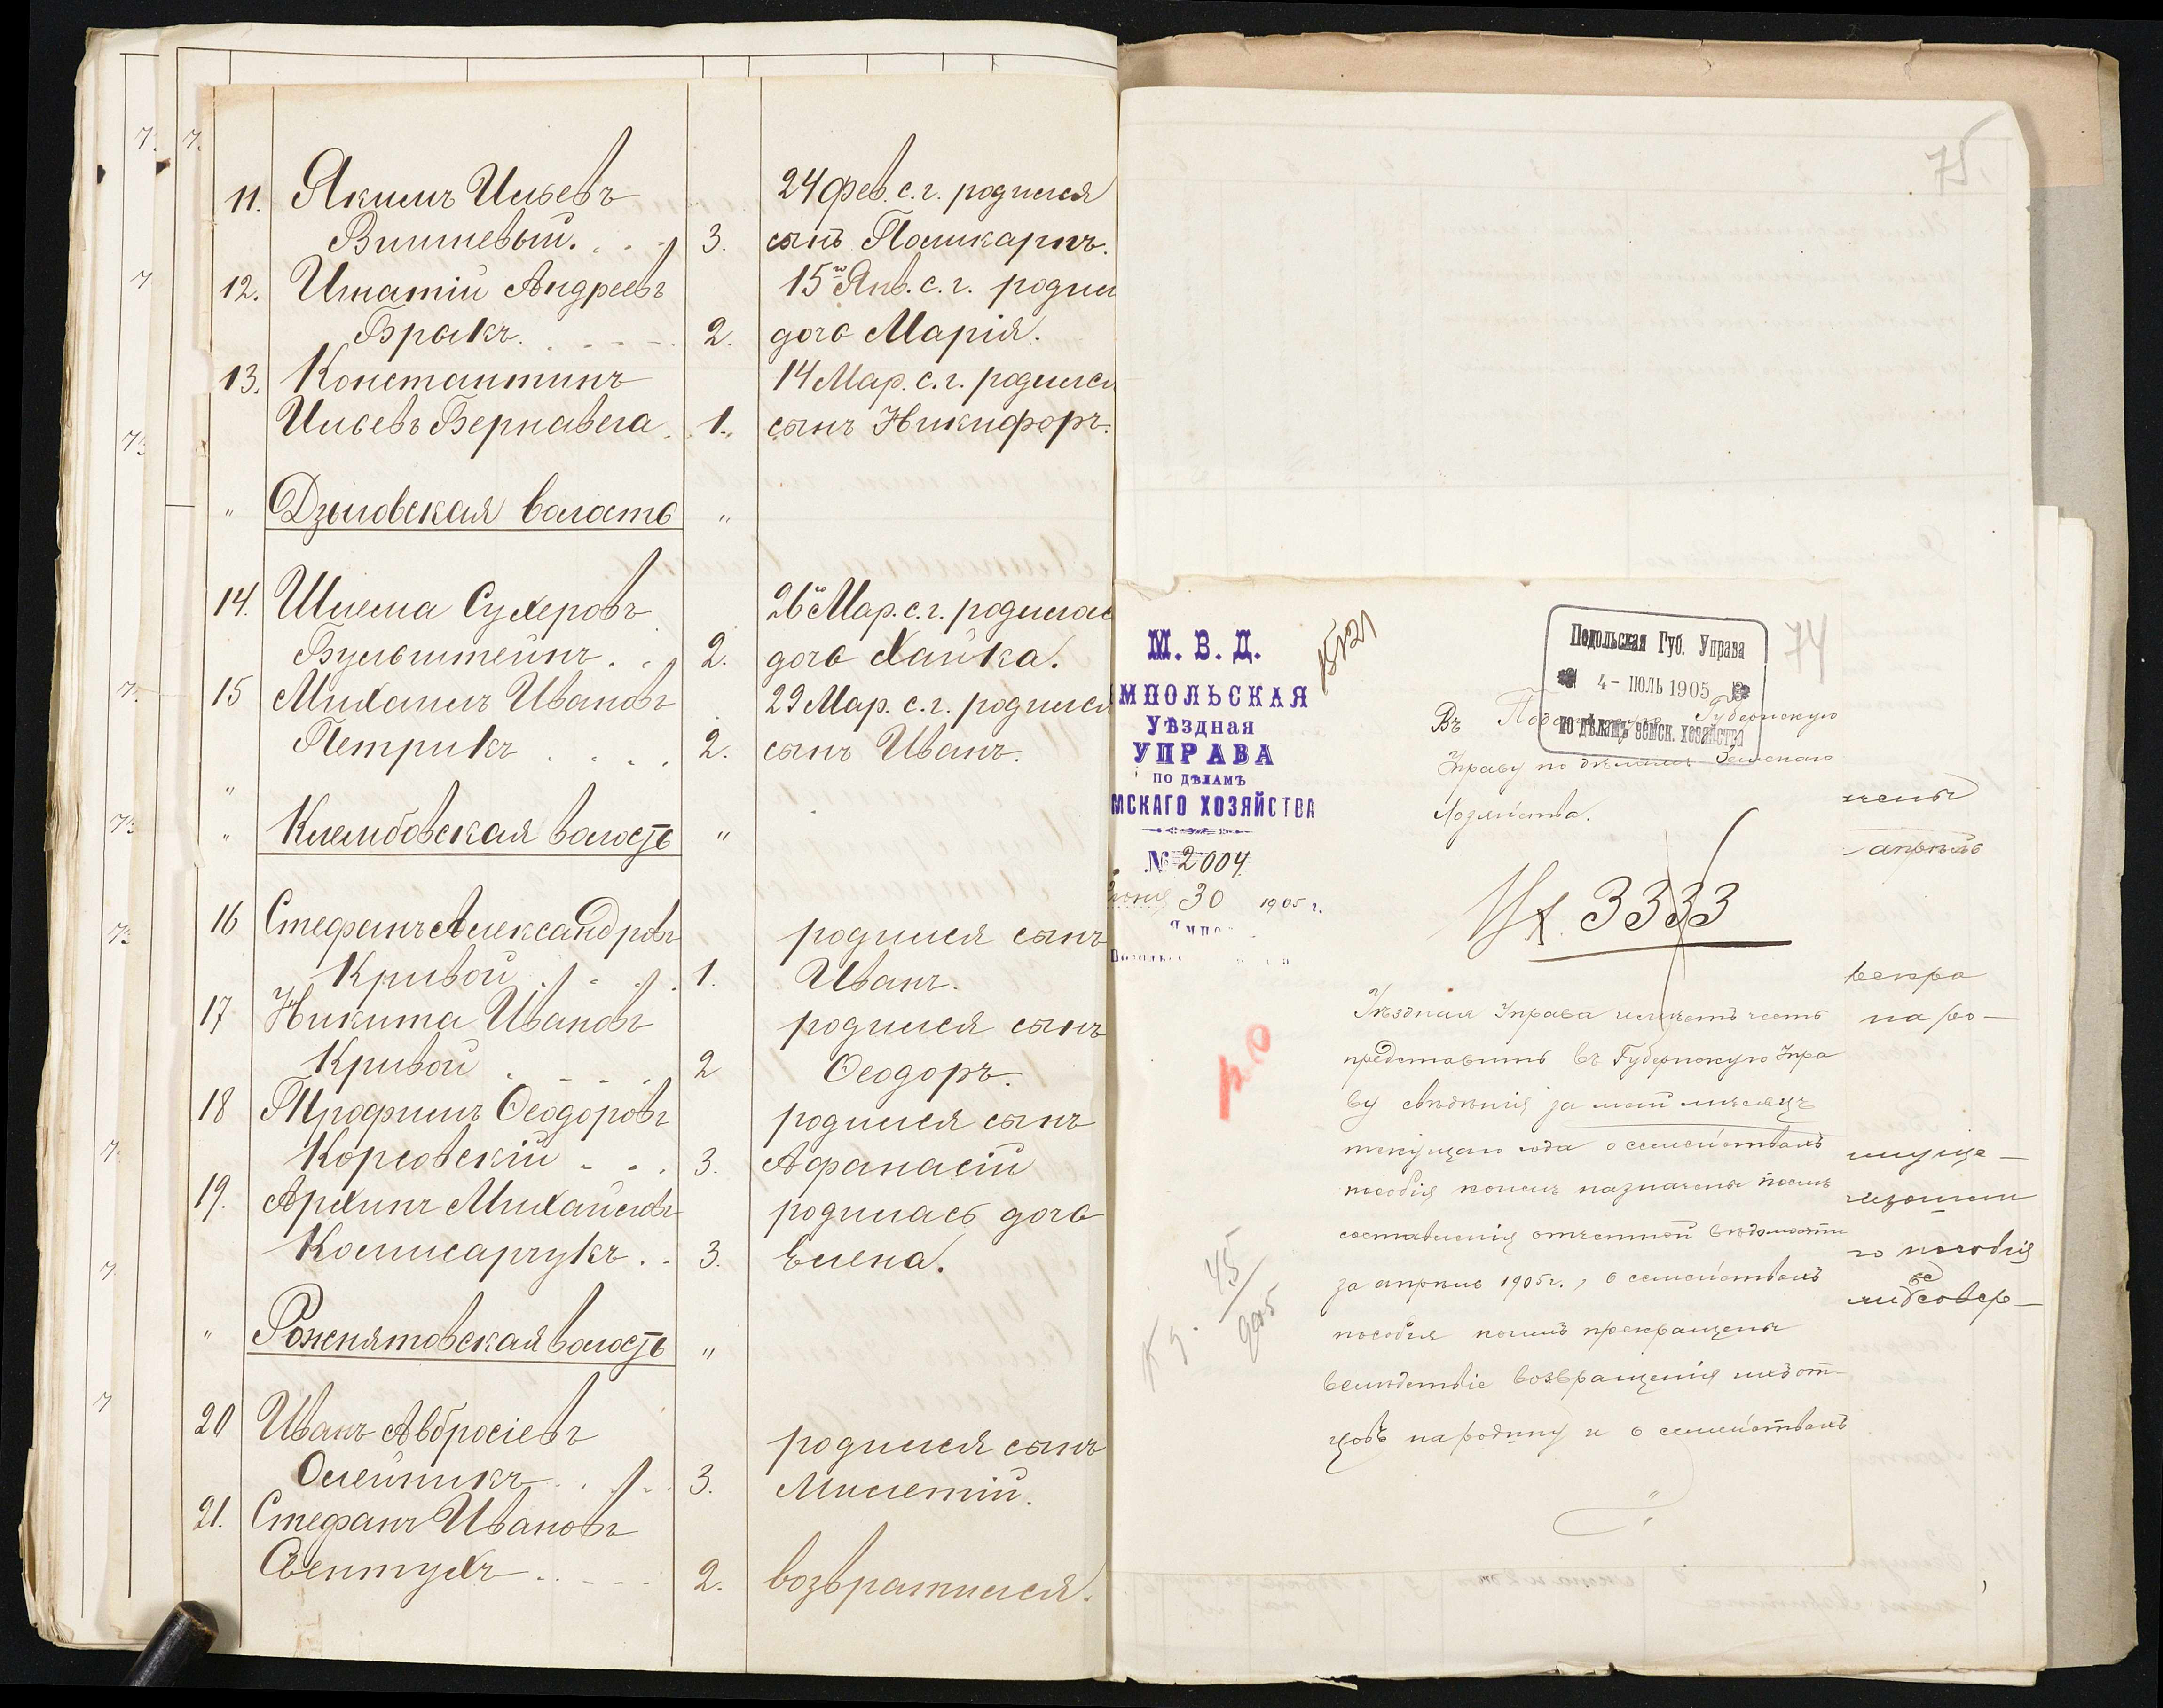 11. Якимъ Ильевъ 24 фев. с. г. родился
Вишневый. 3. сынъ Поликарпъ.
12. Игнатій Андреевъ 15го Янв. с. г. родил
Бракъ. 2. дочь Марія.
13. Константинъ 14 Мар. с. г. родился
Ильевъ Бернавега 1. сынъ Никифоръ.
" Дзыговская волость "
14. Шлема Сухеровъ 26го Мар. с. г. родилась
Бульштейнъ. 2. дочь Хайка.
15 Михаилъ Ивановъ 29 Мар. с. г. родился
Петрикъ 2. сынъ Иванъ.
"
" Клембовская волость "
16 Стефанъ Александровъ родился сынъ
Кривой 1. Иванъ.
17 Никита Ивановъ родился сынъ
Кривой 2 Ѳеодоръ.
18 Трофимъ Ѳеодоровъ родился сынъ
Корсовскій 3. Афанасій
19. Архипъ Михайловъ родилась дочь
Комисарчукъ. 3. Елена.
" Рожнятовская волость "
20 Иванъ Авбросіевъ родился сынъ
Олейникъ 3. Милетій.
21. Стефанъ Ивановъ
Свентухъ 2. возвратился.
75
74
15121
М. В. Д.
МПОЛЬСКАЯ
УѢздная
УПРАВА
ПО ДѢЛАМЪ
МСКАГО ХОЗЯЙСТВА
№ 2004
30 1905 г.
Подольская Губ. Управа
4 - ІЮЛЬ 1905
по дѣламъ земск. хозяйства
Въ Подольскую Губернскую
Управу по дѣламъ Земскаго
Хозяйства.
3333
Уѣздная Управа имѣетъ честь
представить въ Губернскую Упра
ву свѣдѣнія за май мѣсяцъ
текущаго года о семействахъ
пособія коимъ назначены послѣ
составленія отчетной вѣдомости
за апрѣль 1905 г., о семействахъ
пособія коимъ прекращены
вслѣдствіе возвращенія ихъ от-
цовъ на родину и о семействахъ
чены
апрѣль
на ро-
имуще-
го пособія
45
905